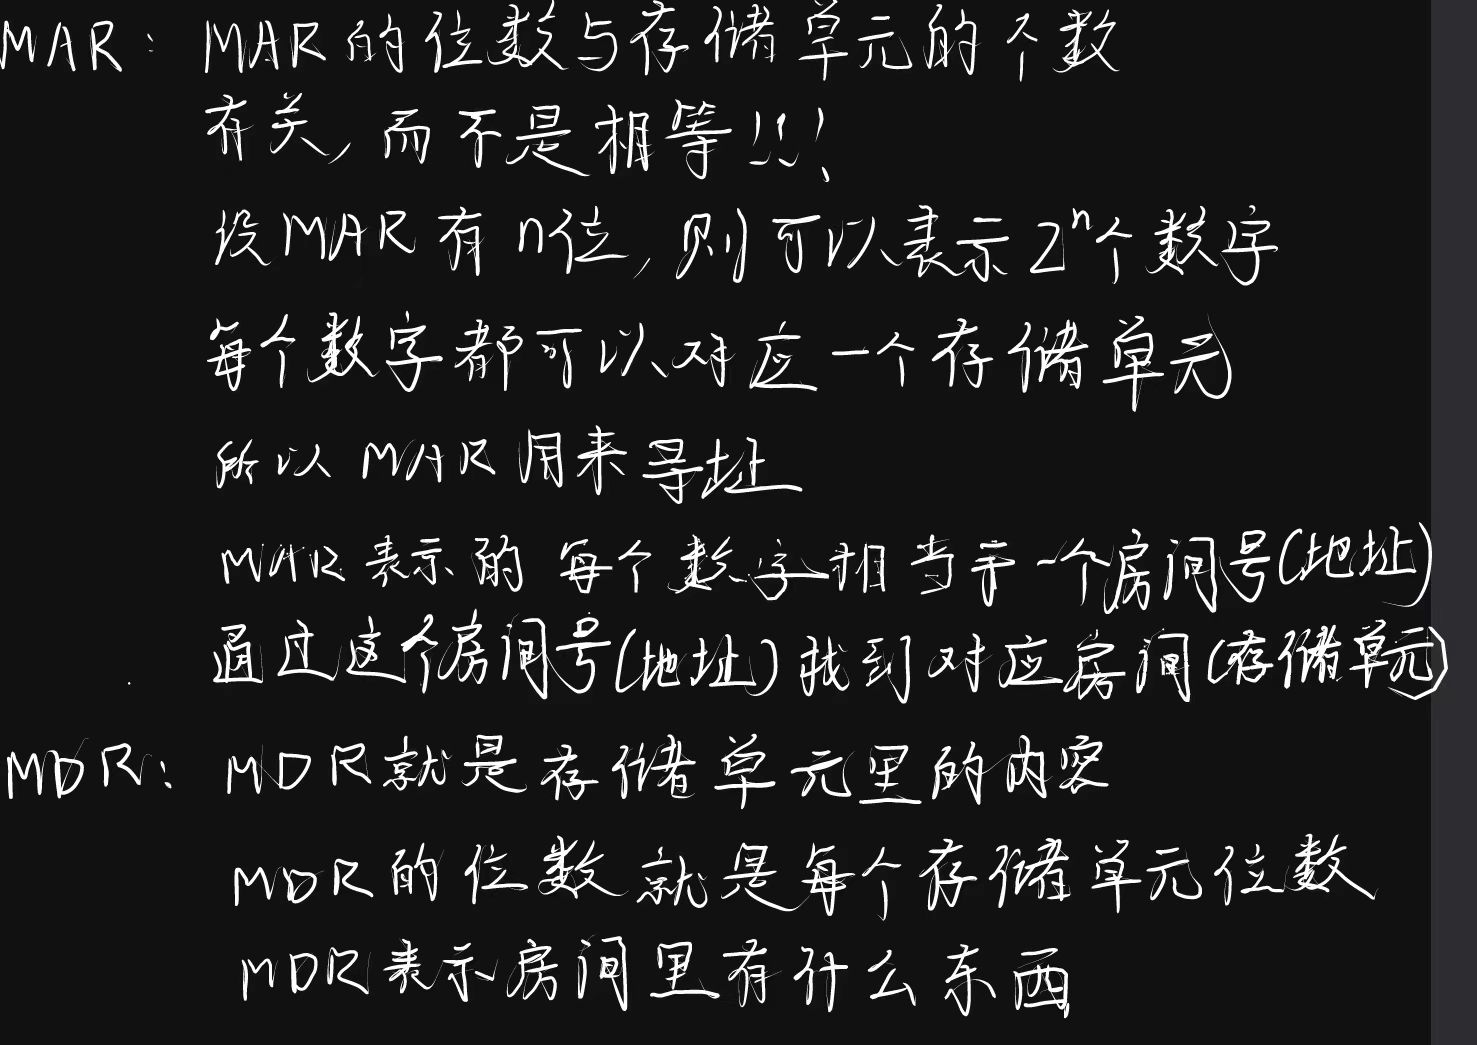 MAR: MAR的位数与存储单元的个数
有关,而不是相等!!!
设MAR有n位,则可以表示2ⁿ个数字
每个数字都可以对应一个存储单元
所以MAR用来寻址
MAR表示的每个数字相当于一个房间号(地址)
通过这个房间号(地址)找到对应房间(存储单元)
MDR: MDR就是存储单元里的内容
MDR的位数就是每个存储单元位数
MDR表示房间里有什么东西